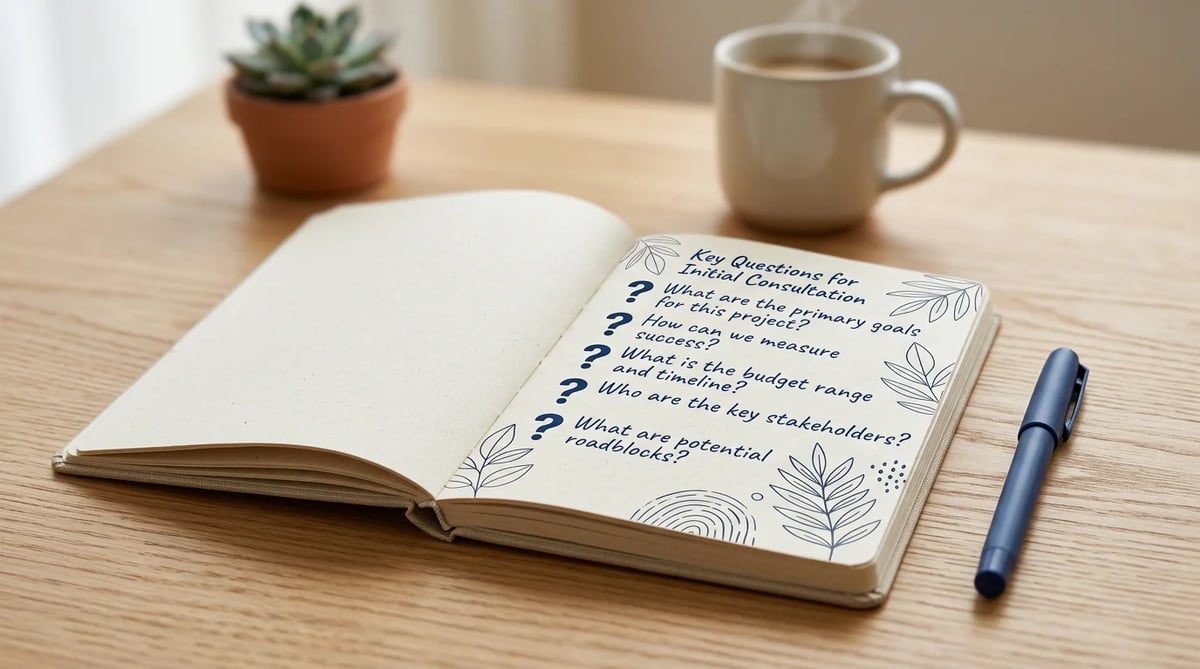 Key Questions for
Initial Consultation
? What are the primary goals
for this project?
? How can we measure
success?
? What is the budget range
and timeline?
? Who are the key stakeholders?
? What are potential
roadblocks?